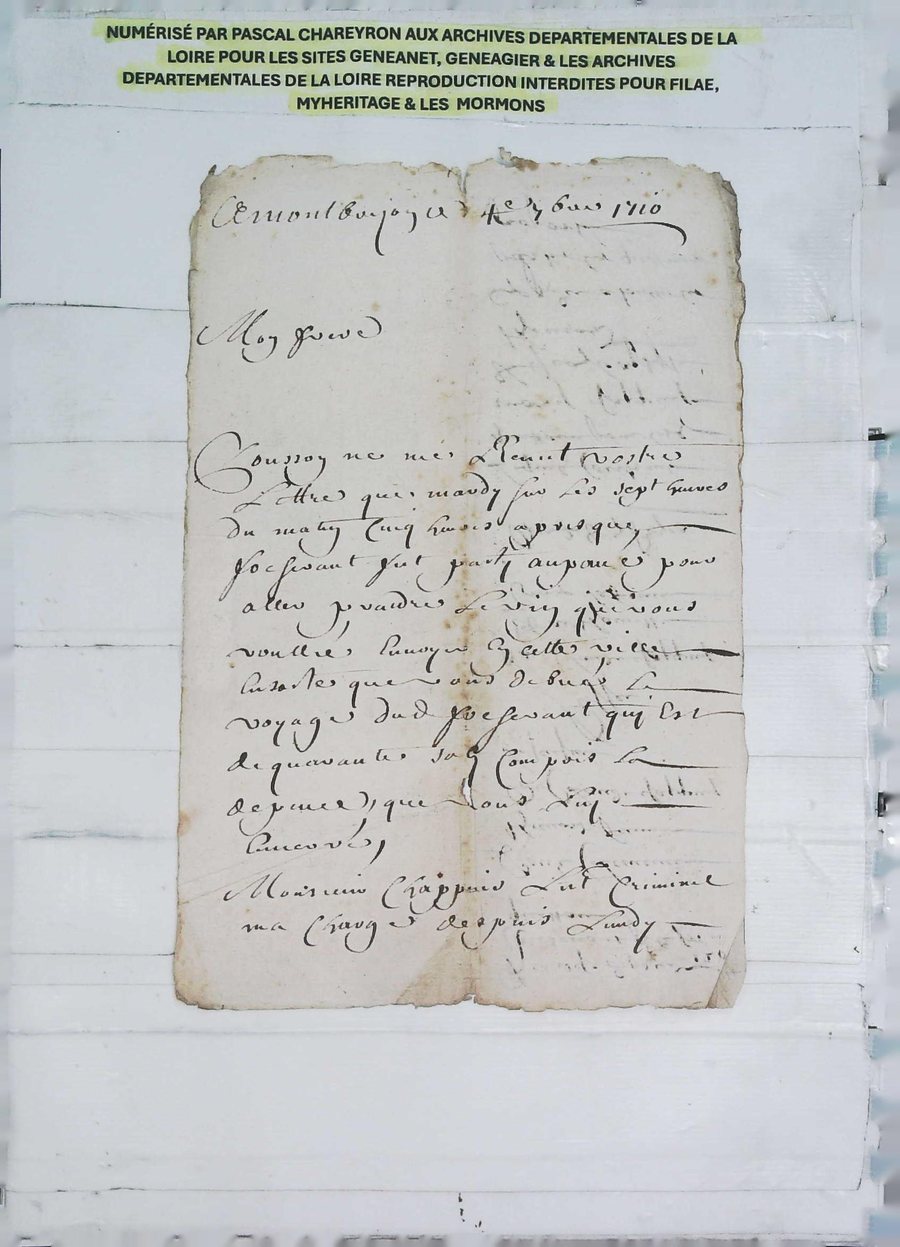 NUMÉRISÉ PAR PASCAL CHAREYRON AUX ARCHIVES DEPARTEMENTALES DE LA
LOIRE POUR LES SITES GENEANET, GENEAGIER & LES ARCHIVES
DEPARTEMENTALES DE LA LOIRE REPRODUCTION INTERDITES POUR FILAE,
MYHERITAGE & LES MORMONS
4e 7bre 1710
Mon frere
ne me Remit vostre
Lettre que mardy sur les sept heures
du matin Cinq heures apres que
fut party pour
aller prandre Le vin que vous
voulliés Envoyer En cette ville
Ensorte que vous debués Le
voyage dud qui Est
de quarante sols Compris La
depance que vous luy
Monsieur Chappuis Lieut Criminel
ma Charge despuis Lundy